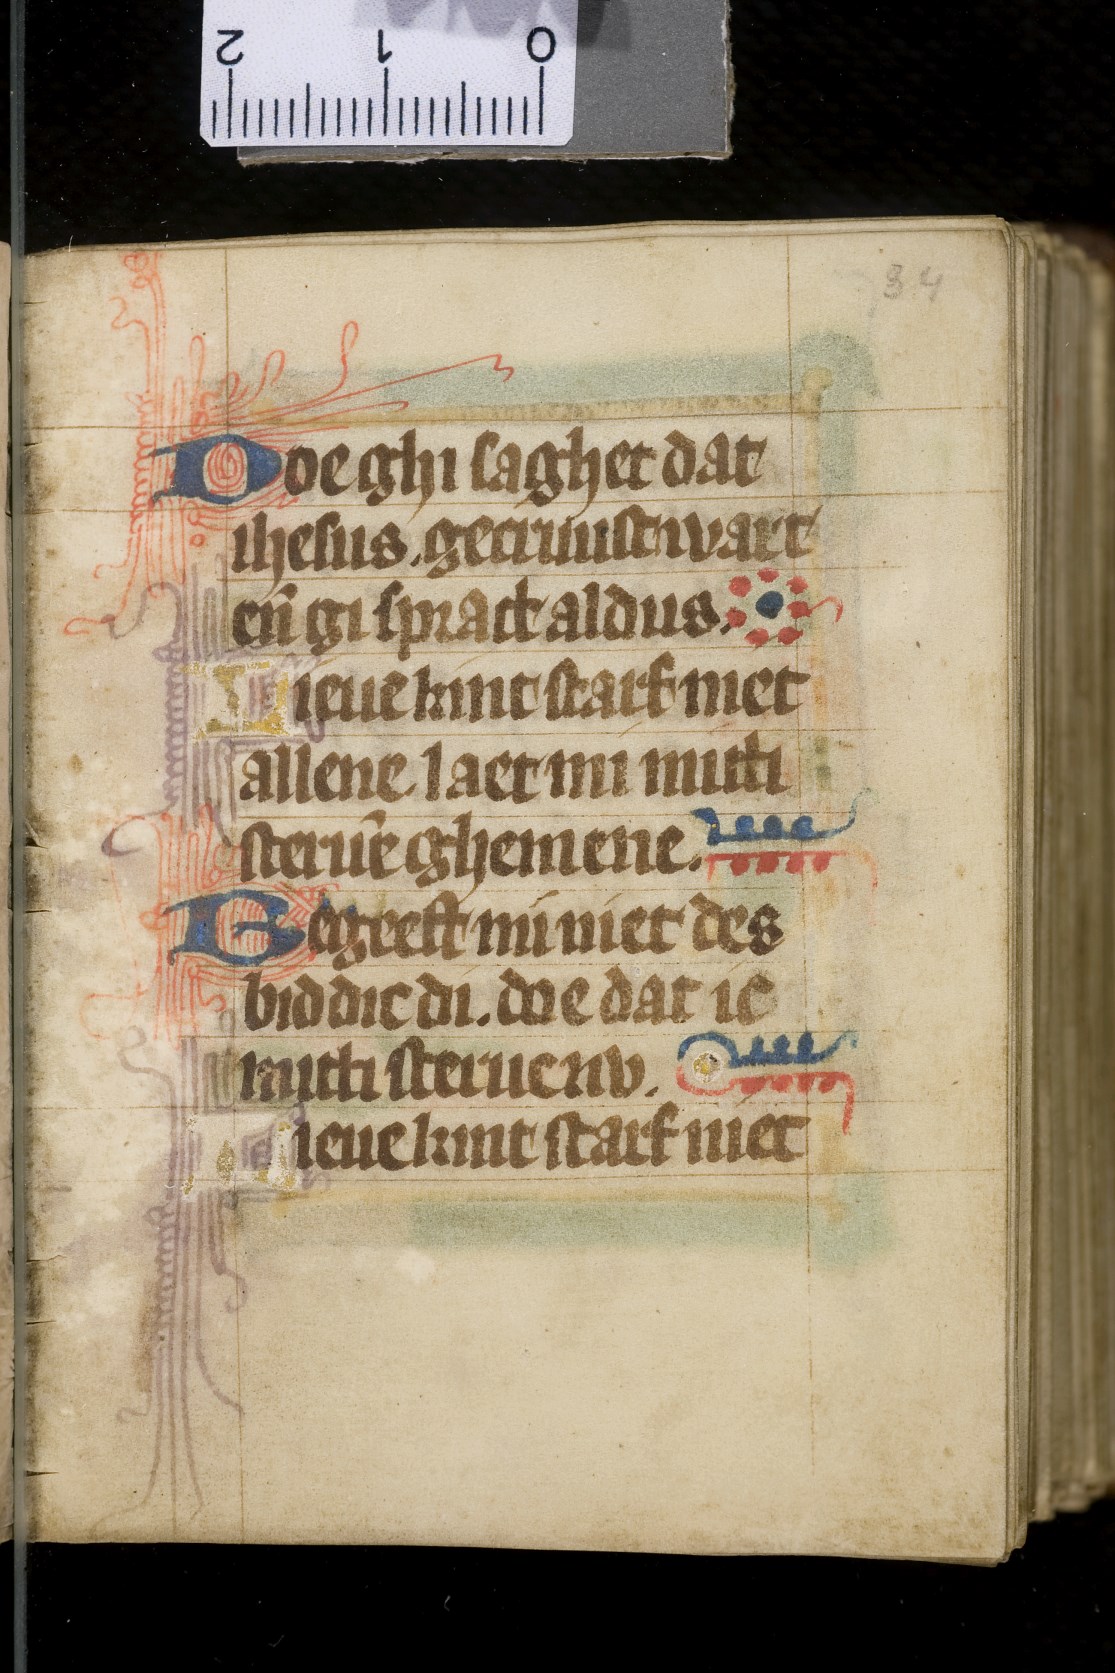 2 1 0
34
Doe ghi saghet dat
ihesus. gecruust wart
en̄ gi sprack aldus.
Lieue kint starf niet
allene laet mi mitti
sterūe ghemene.
Begreft mi niet des
biddic di. doe dat ic
mitti sterue nv.
Lieue kint starf niet